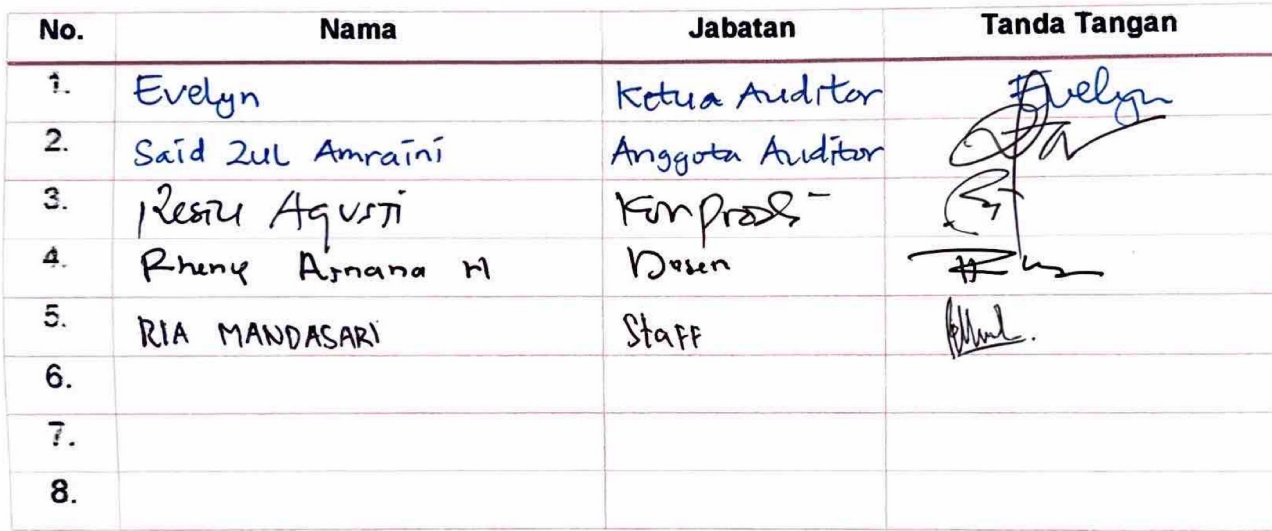 No. Nama Jabatan Tanda Tangan
1. Evelyn Ketua Auditor Evelyn
2. Said Zul Amraini Anggota Auditor
3. Agusti
4. Rheny M Dosen
5. RIA MANDASARI Staff
6.
7.
8.